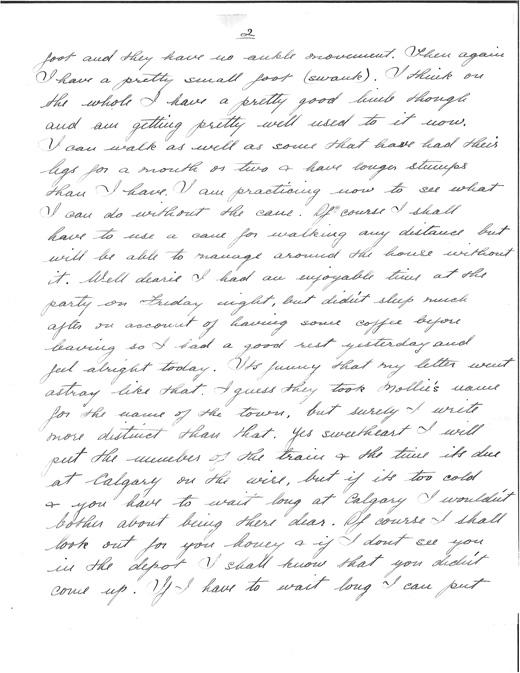 2
foot and they have no ankle movement. Then again
I have a pretty small foot (swank). I think on
the whole I have a pretty good limb though
and am getting pretty well used to it now.
I can walk as well as some that have had their
legs for a month or two & have longer stumps
than I have. I am practicing now to see what
I can do without the cane. Of course I shall
have to use a cane for walking any distance but
will be able to manage around the house without
it. Well dearie I had an enjoyable time at the
party on Friday night, but didn't sleep much
after on account of having some coffee before
leaving so I had a good rest yesterday and
feel alright today. Its funny that my letter went
astray like that. I guess they took Mollie's name
for the name of the town, but surely I write
more distinct than that. Yes sweetheart I will
put the number of the train & the time its due
at Calgary on the wire, but if its too cold
& you have to wait long at Calgary I wouldn't
bother about being there dear. Of course I shall
look out for you honey & if I dont see you
in the depot I shall know that you didn't
come up. If I have to wait long I can put